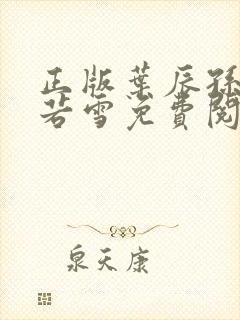 正版葉辰孫
若雪免費閱
泉天康